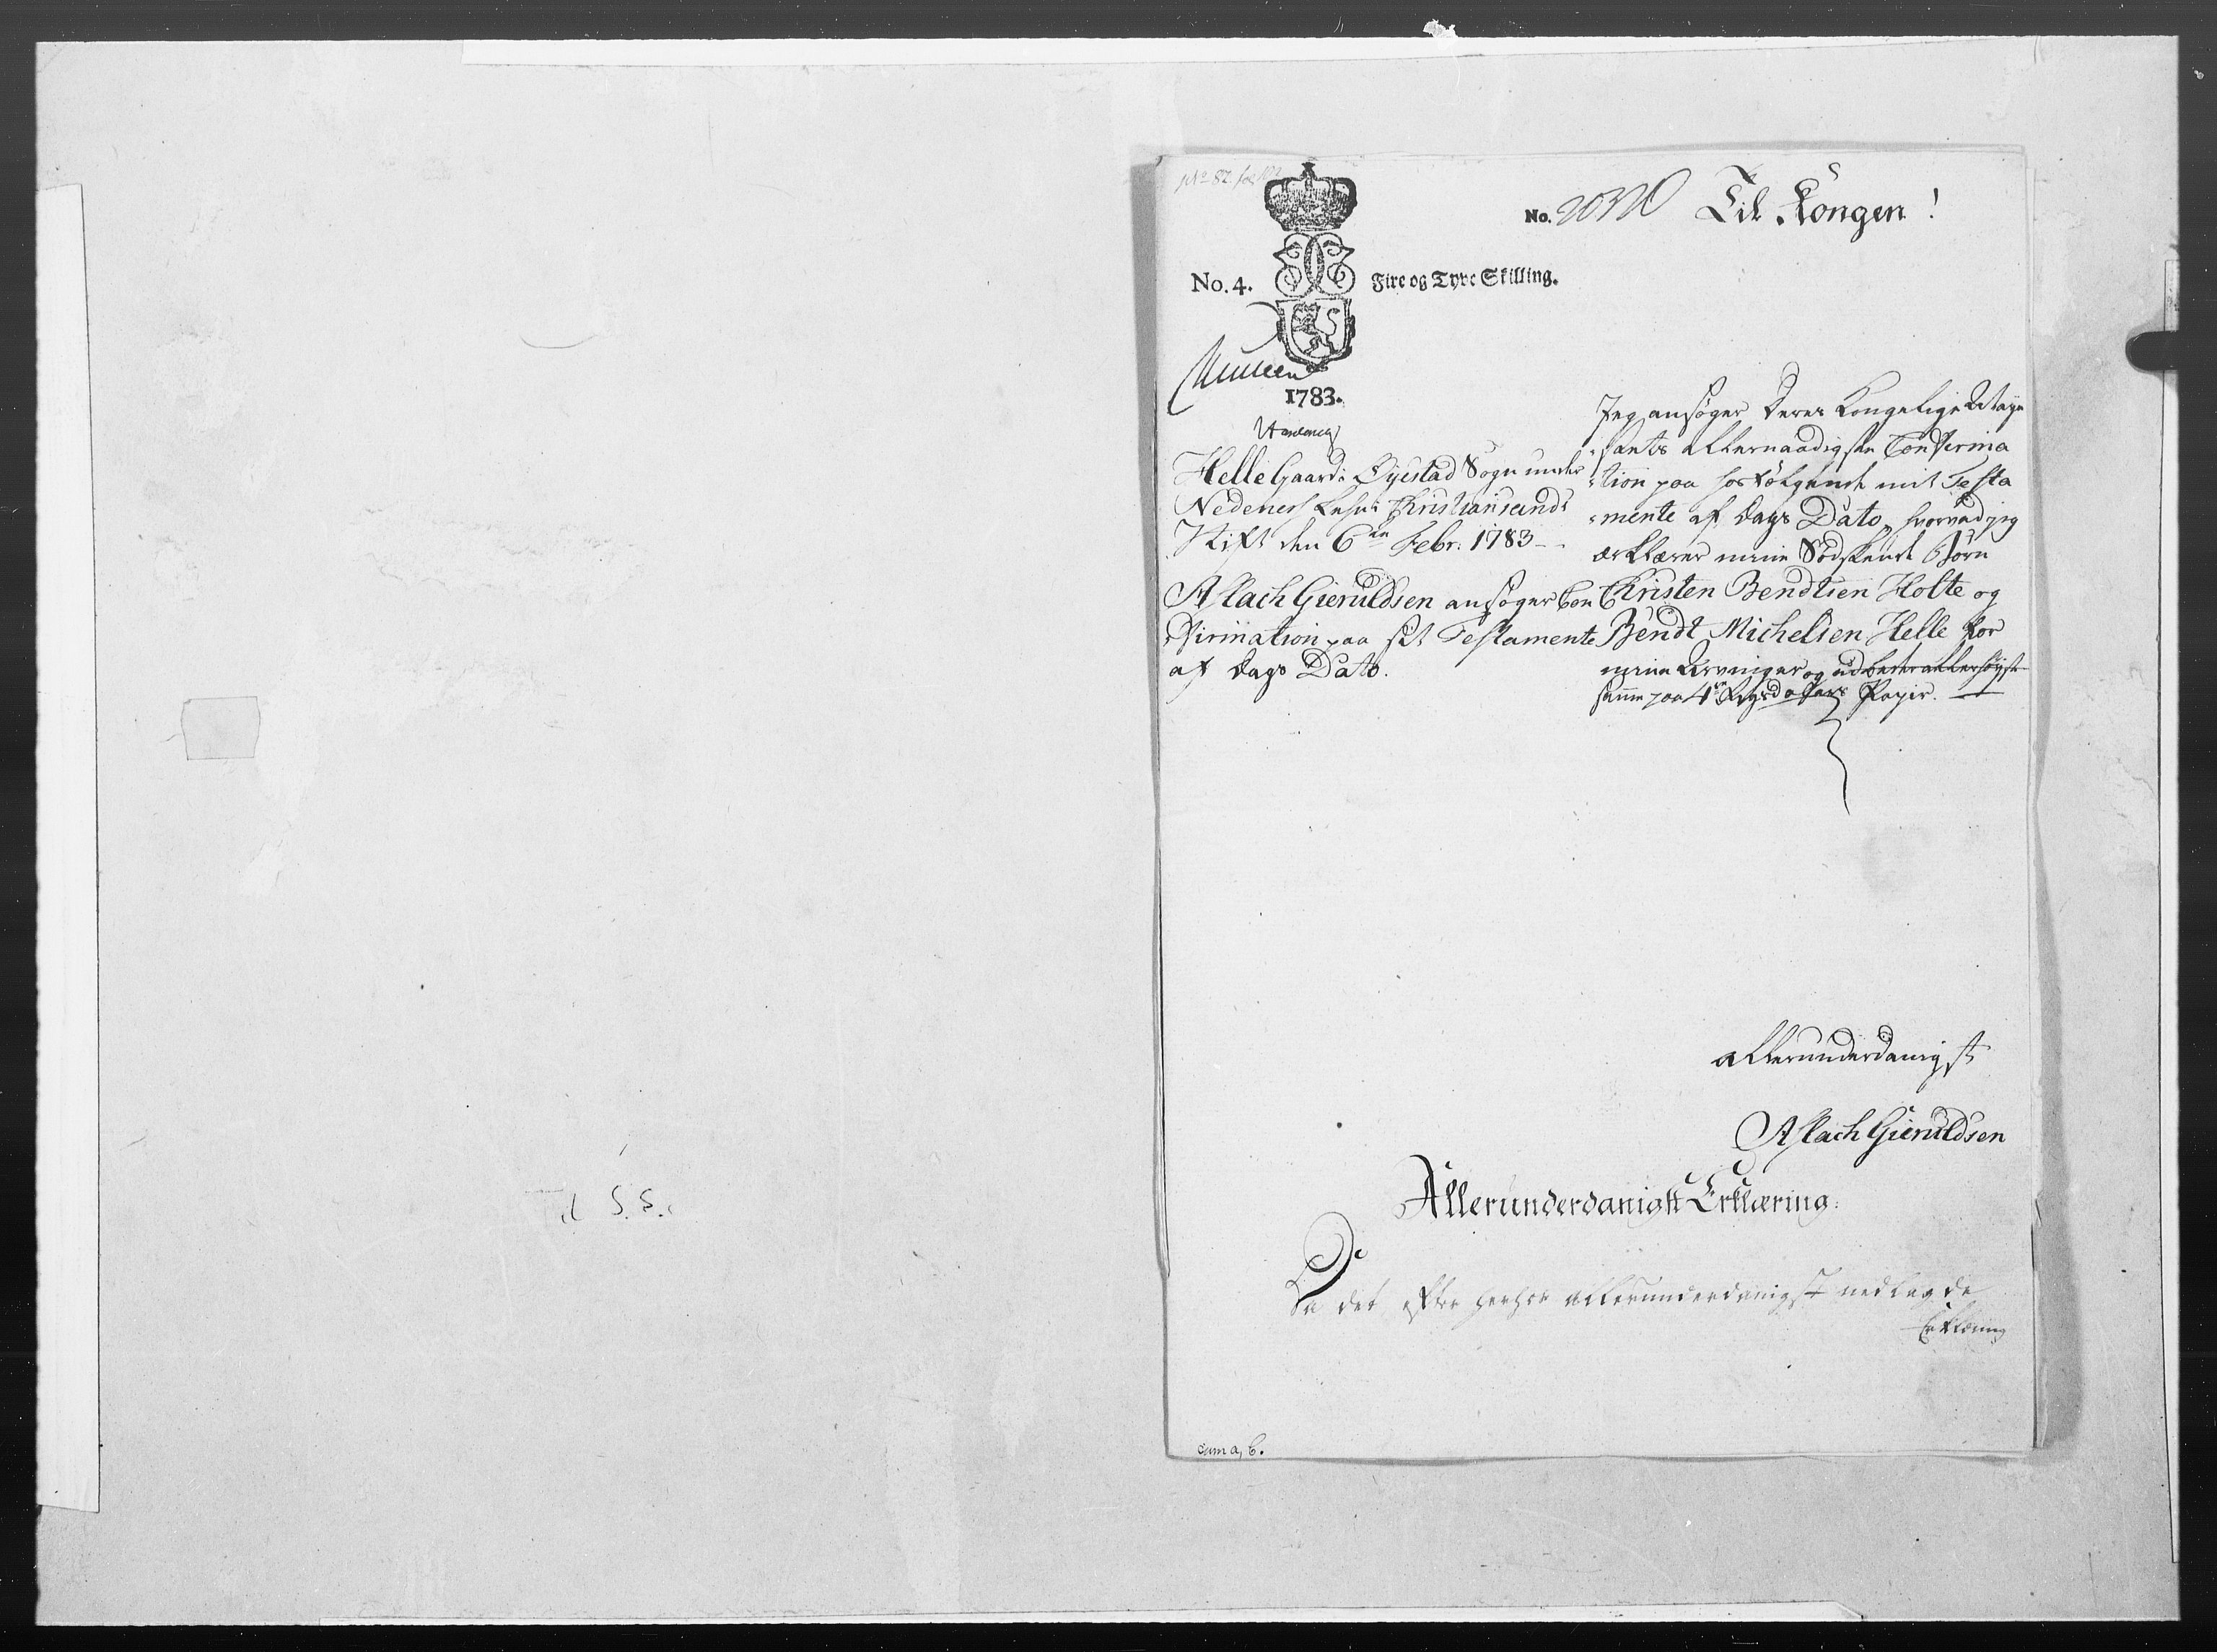 No. 82. fol.
No. 20320
Til Kongen!
No. 4.
Fire og Tyve Skilling.
1783.
Helle Gaard i Øyestad Sogn under
Nedenes Lehn i Christiansands
Stift den 6te Febr. 1783
Aslach Gieruldsen ansøger Con
firmation paa sit Testamente
af Dags Dato.
Jeg ansøger Deres Kongelige Maye
stæts allernaadigste Confirma
tion paa hosfølgende mit Testa
mente af Dags Dato, hvorved jeg
erklærer mine Sødskende Børn
Christen Bendtsen Holte og
Bendt Michelsen Helle for
mine Arvinger og udbeder allerhøyst
samme paa 4re Rigsdalers Papir.
allerunderdanigst
Aslach Gieruldsen
Allerunderdanigst Erklæring:
Da det efter herhos allerunderdanigst nedlagde
Erklæring
cum a, b.